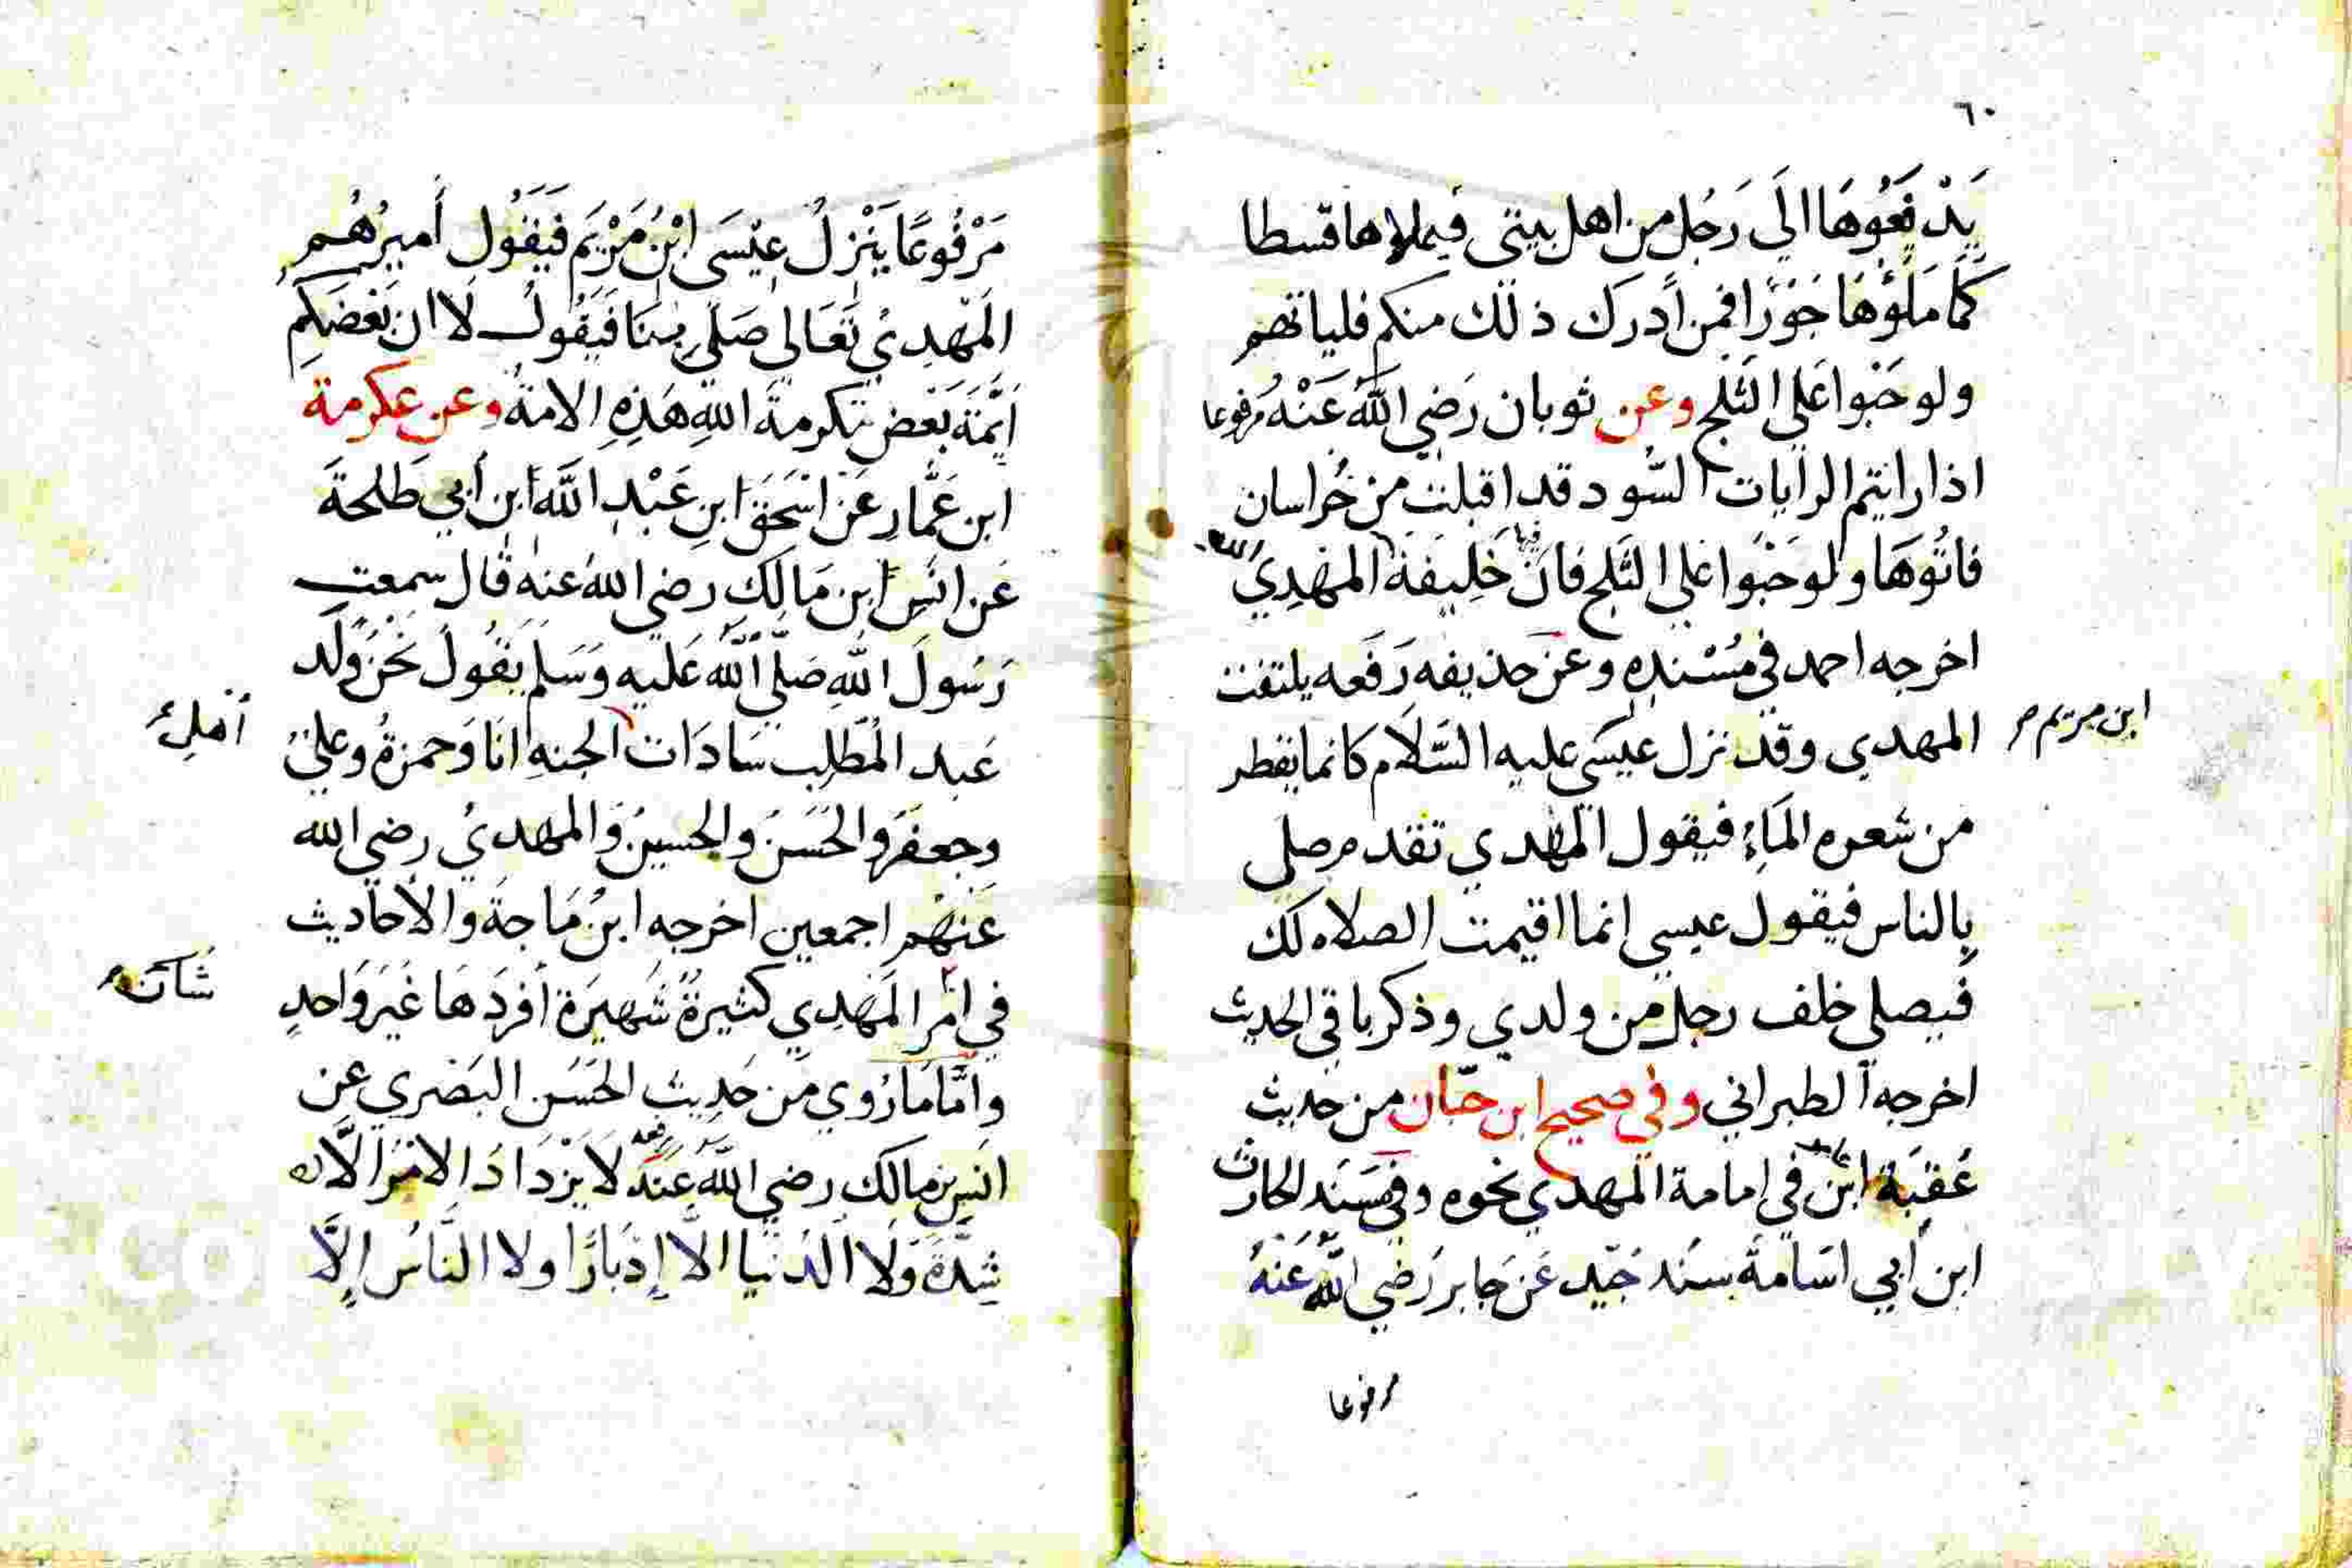 ٦٠
يَدْفَعُوهَا الَي رَجُل من اهل بيتي فيملاها قسطا
كَمَا مَلَؤُهَا جَوْرًا فمن أدرك ذلك منكم فلياتهم
ولو حَبْوا عَلي الثلج وعن ثوبان رَضي اللَّه عَنْهُ مرفوعا
اذا رايتم الرايات السُّود قد اقبلت من خُراسان
فاتُوهَا ولو حَبْوا عَلي الثَلج فانَّ فيها خَلِيفَةَ الله المهْدِيَ
اخرجه احمد في مُسْندِه وعَن حذيفه رَفَعه يلتفت
المهدي وقد نزل عيسَى عليه السَّلَام كانما يقطر
ابن مريم
من شعره المَاءُ فيقول المهدي تقدم صلي
بالناس فيقول عيسي انما اقيمت الصلاه لك
فيصلي خلف رجل من ولدي وذكر باقي الحديث
اخرجه الطبراني وفي صحيح ابن حبّان من حديث
عُقبَة ابن عامر في امامة المهدي نحوه وفي مسَنَد الحارث
ابن أبي اسَامةَ بسَند جَيّد عَن جابر رَضي اللَّه عَنهُ
مرفوعا
مَرْفُوعًا يَنْزِلُ عِيْسَى ابْنُ مَرْيَم فَيَقُول أميرُهُم
المَهْدِيُ تَعَالى صَلّي بِنَا فَيَقُولُ لَا ان بَعْضَكُم
أئمَّةَ بَعْض تكرمةَ اللهِ هَذِهِ الامةُ وعن عكرمة
ابن عَمَّار عَن اسْحَقَ ابنِ عَبْدِ اللَّه ابن أبي طَلحةَ
عَن انَسِ ابن مَالِكٍ رضي اللهُ عنهُ قال سمعت
رَسُولَ اللهِ صَلّي اللَّهُ عَليه وَسَلم يَقُولُ نَحْنُ وَلَد
عَبد المُطّلِب سَادَات اهل الجنهِ انَا وَحمزةُ وعليُ
وجعفَرُ والحَسَنُ والحسينُ والمهديُ رضي الله
عَنْهُم اجمعين اخرجه ابنُ مَاجةَ والأحاديث
في امْر المَهْدِي كثيرةٌ شَهيرَة أفردَهَا غَيرَ وَاحدٍ
وامَّا مَا رُوي مِن حَدِيثِ الحَسَن البَصْري عن
انَسِ بن مالك رضي اللَّه عنه رفعه لا يَزْدَادَ الامْرَ الَّا
شِدَّةً وَلَا الدُنْيا الا إدْبَارًا ولا النَّاسُ إلَّا